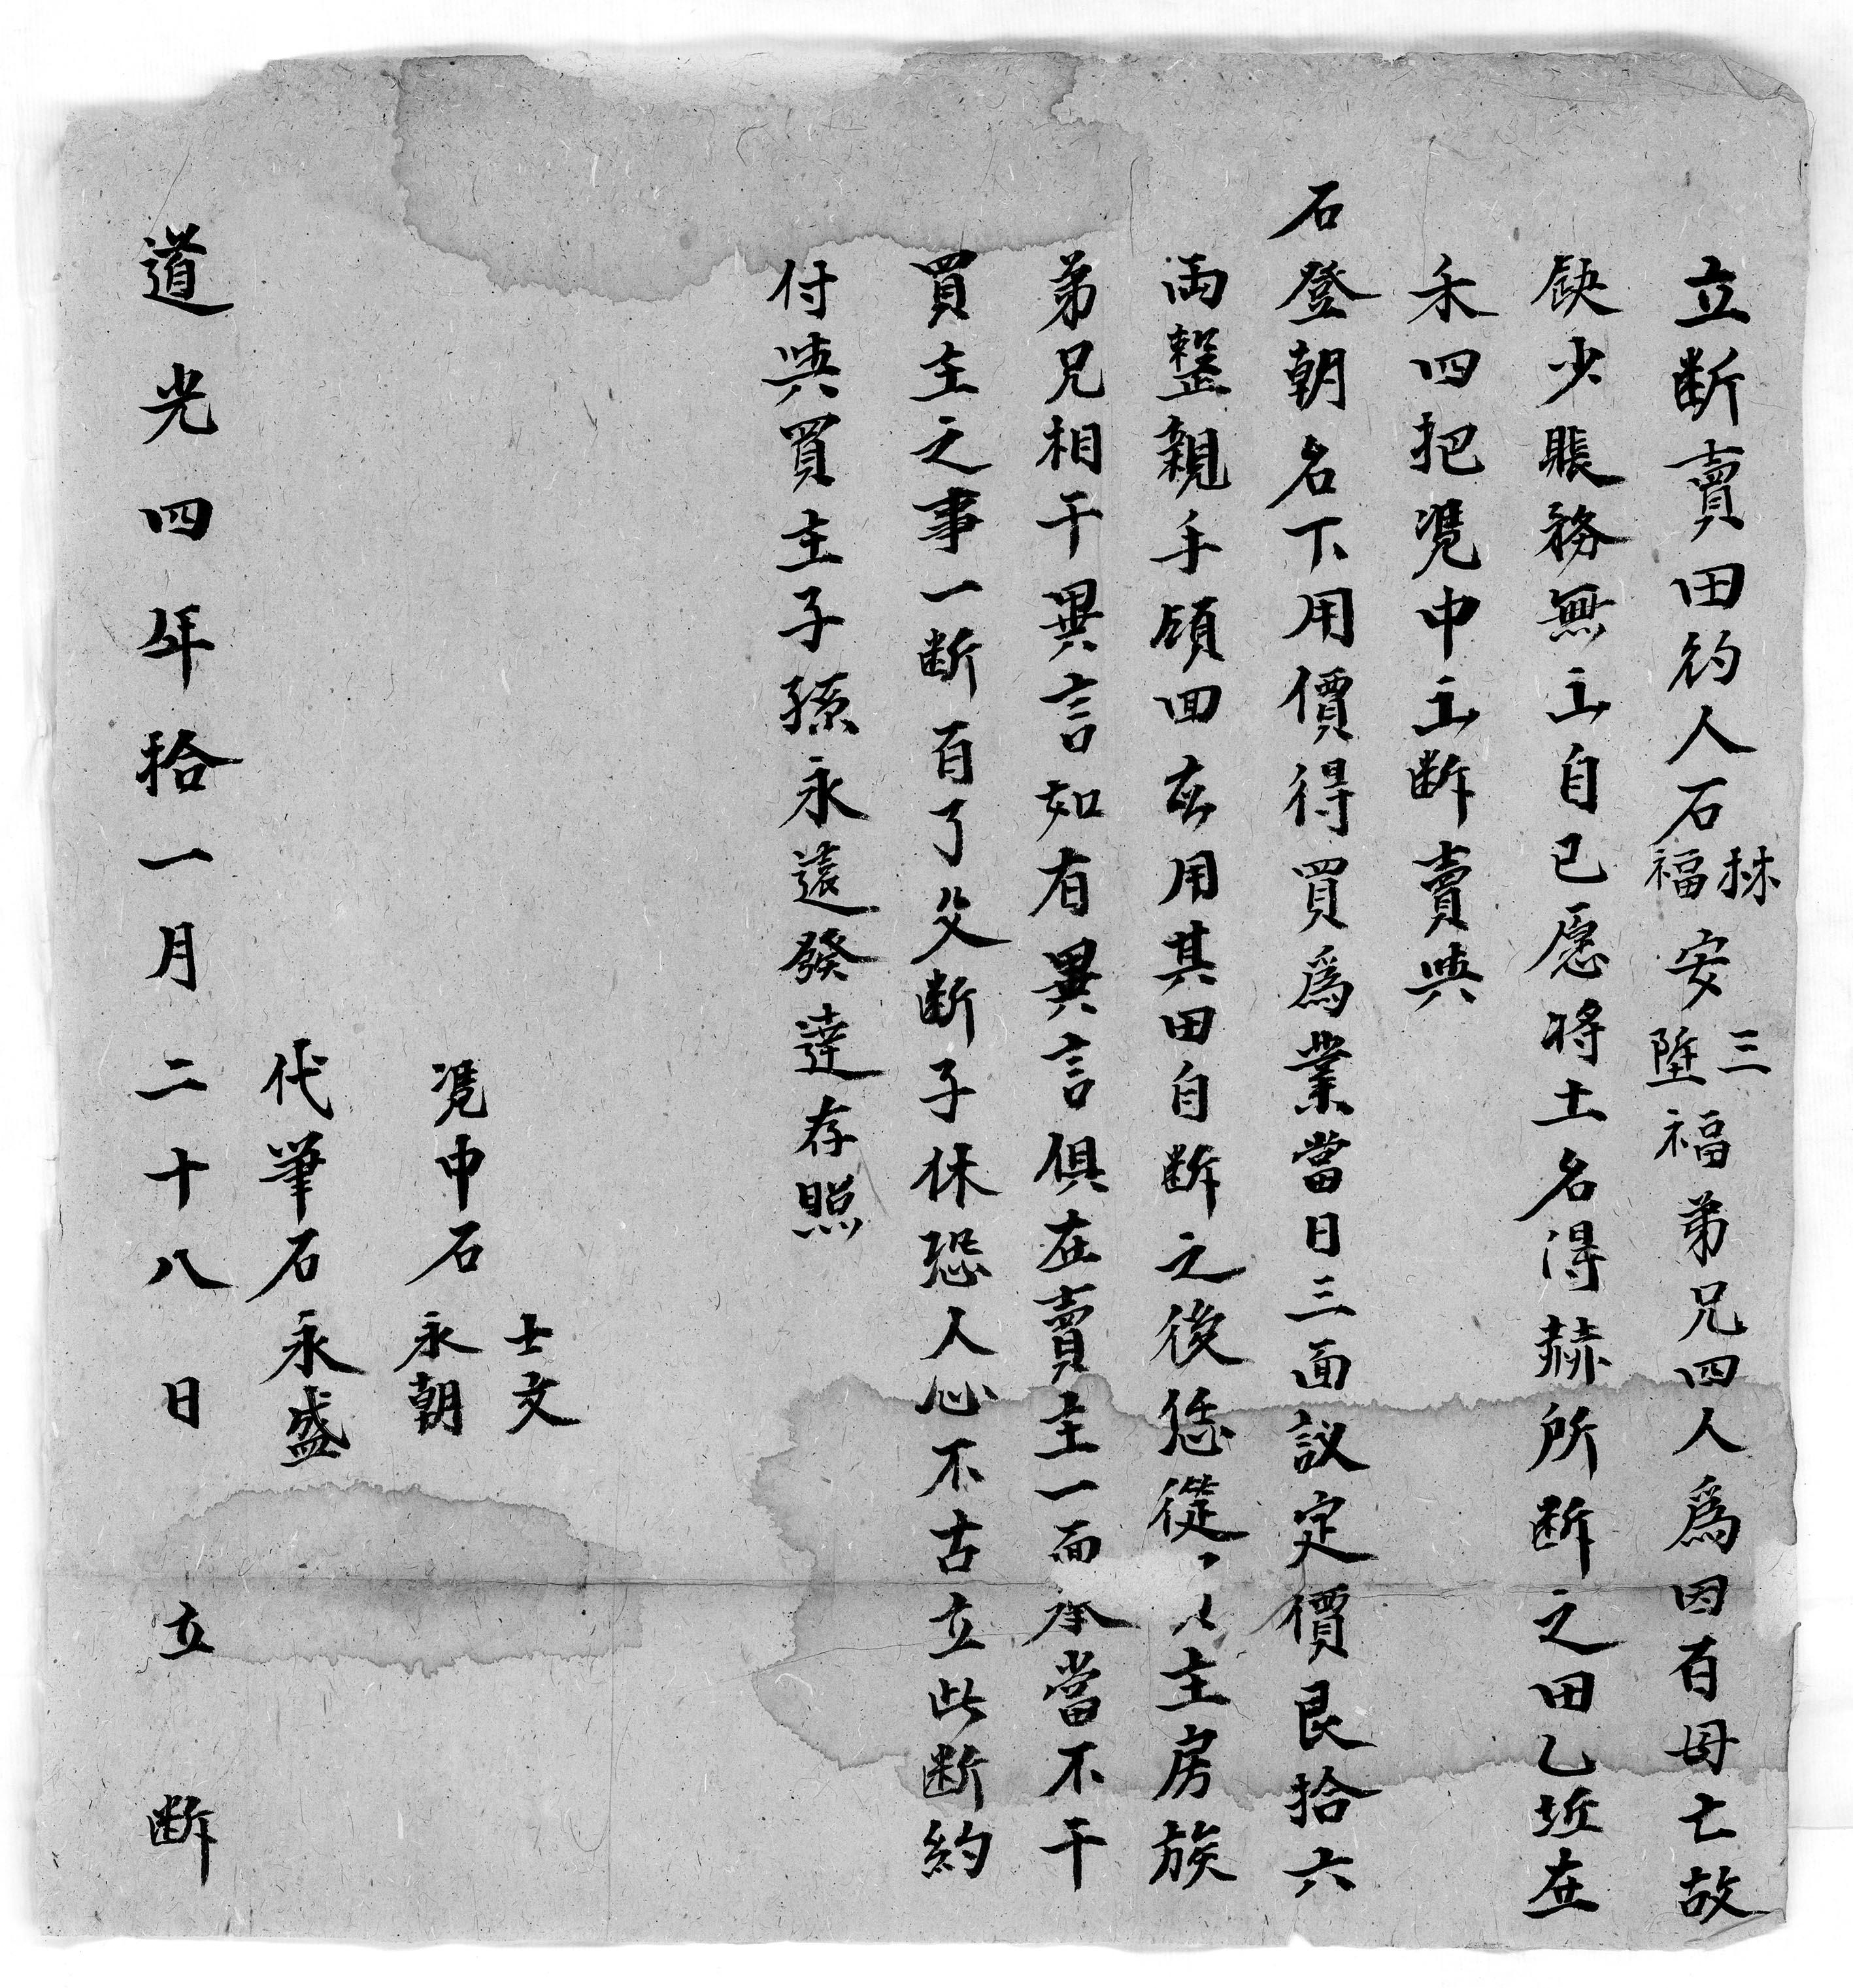 立断賣田約人石林福安三陞福弟兄四人爲因百母亡故
缺少賬務無立自己愿将土名得赫所断之田乙坵在
禾四把凴中立断賣與
石登朝名下用價得買爲業當日三面議定價艮拾六
両整親手領回去用其田自断之後恁從主房族
弟兄相干異言如有異言俱在賣主一面承當不干
買主之事一断百了父断子休恐人心不古立此断約
付與買主子孫永遠發達存照
凴中石士文永朝
代筆石永盛
道光四年拾一月二十八日立断